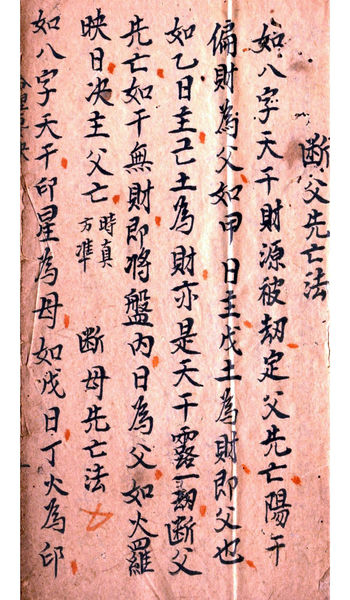 斷父先亡法
如八字天干財源被刼定父先亡陽干
偏財為父如甲日主戊土為財即父也
如乙日主己土為財亦是天干露一刼斷父
先亡如干無財即將盤内日為父如火羅
映日決主父亡時真方準 斷母先亡法
如八字天干印星為母如戊日丁火為印